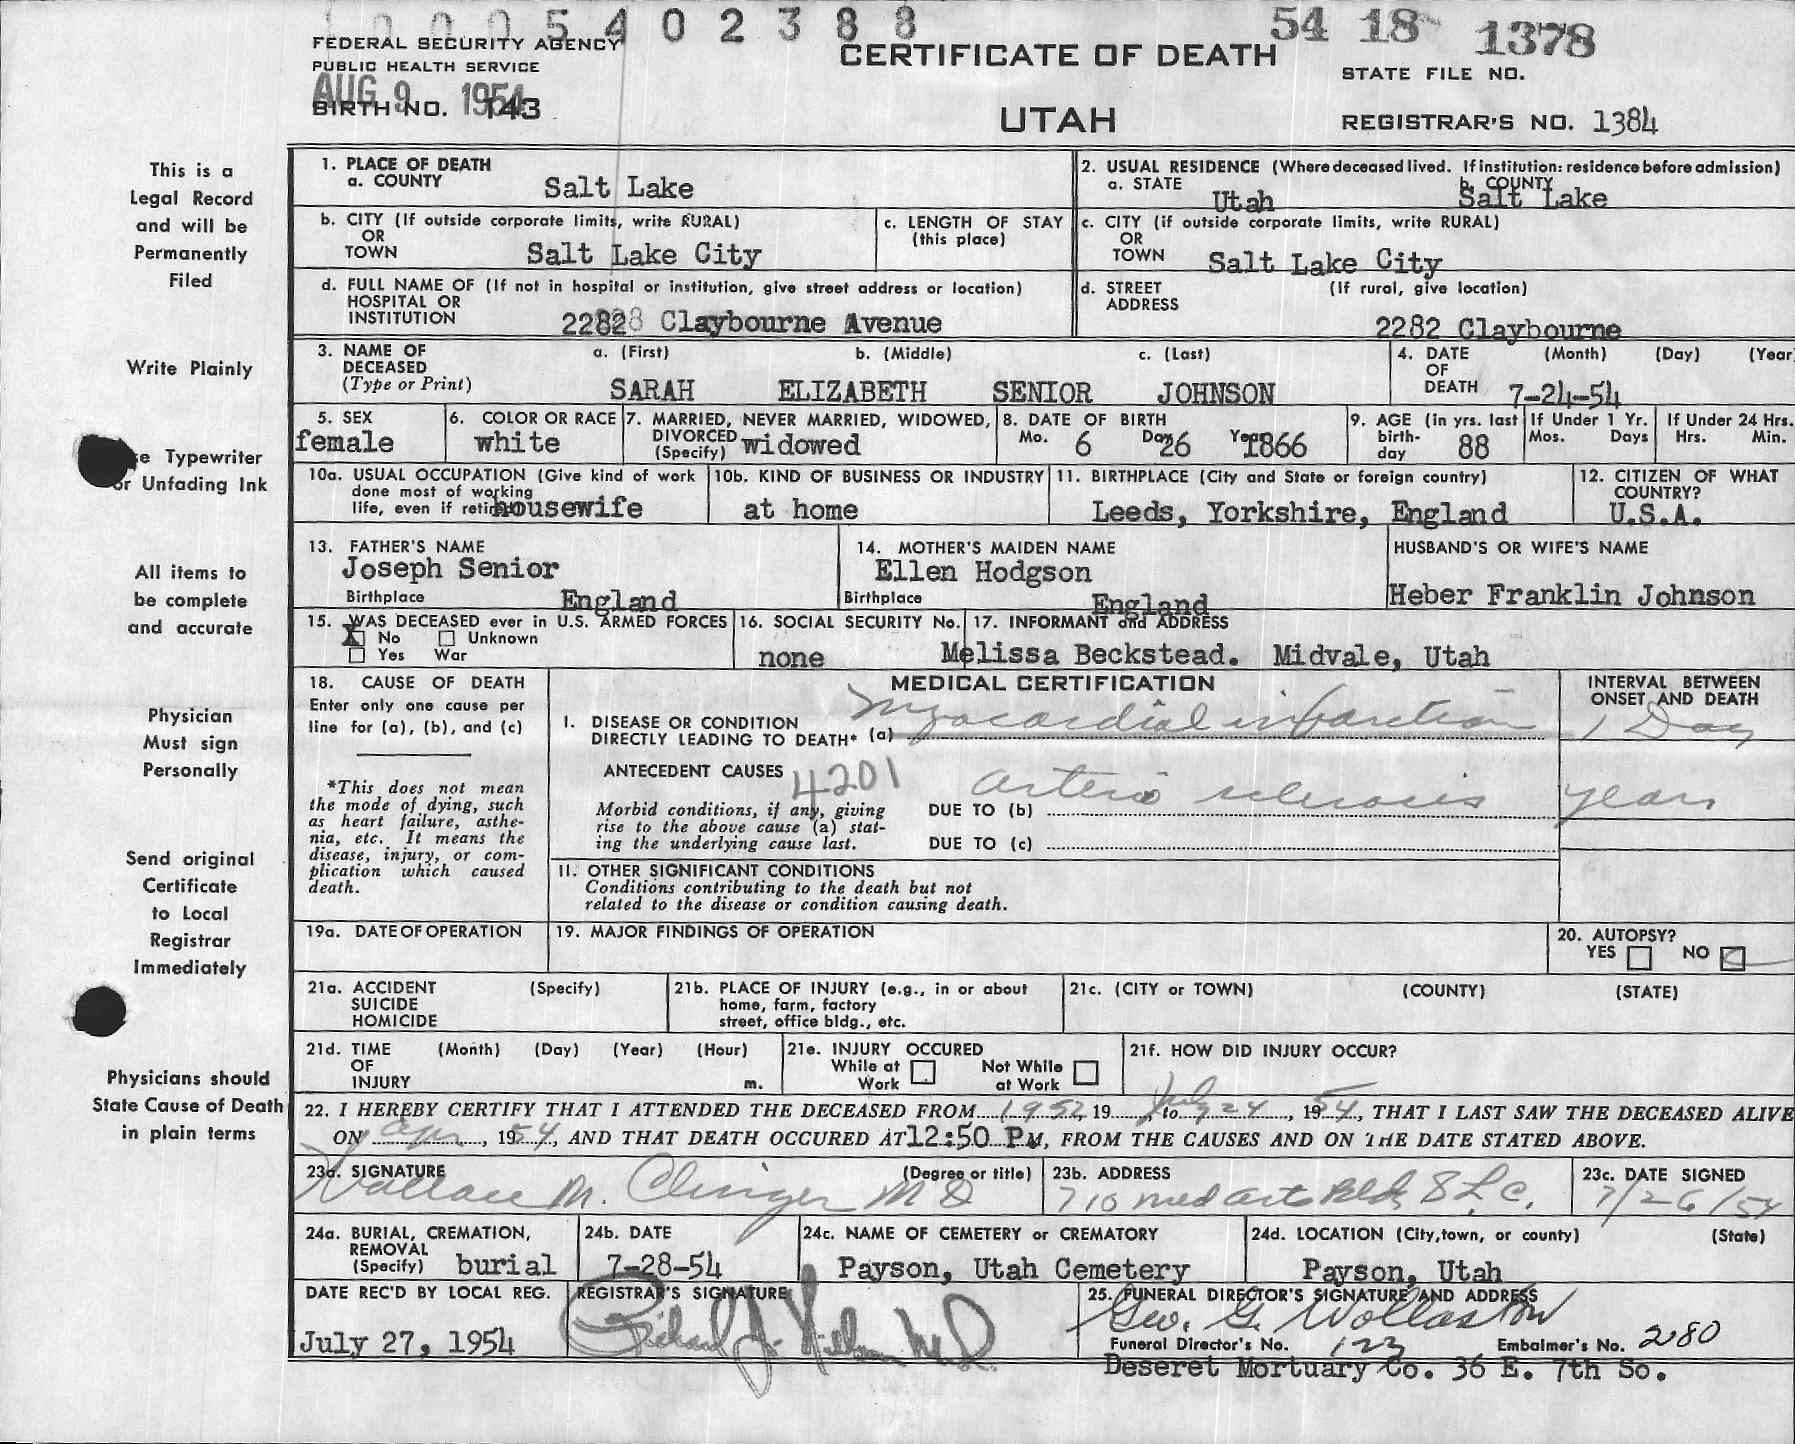 1000540238 8
54 18 1378
FEDERAL SECURITY AGENCY
PUBLIC HEALTH SERVICE
AUG 9 1954
BIRTH NO. 143
CERTIFICATE OF DEATH
UTAH
STATE FILE NO.
REGISTRAR'S NO. 1384
This is a
Legal Record
and will be
Permanently
Filed
Write Plainly
Typewriter
or Unfading Ink
All items to
be complete
and accurate
Physician
Must sign
Personally
Send original
Certificate
to Local
Registrar
Immediately
Physicians should
State Cause of Death
in plain terms
1. PLACE OF DEATH
a. COUNTY Salt Lake
2. USUAL RESIDENCE (Where deceased lived. If institution: residence before admission)
a. STATE Utah b. COUNTY Salt Lake
b. CITY (If outside corporate limits, write RURAL)
OR
TOWN Salt Lake City
c. LENGTH OF STAY
(this place)
c. CITY (if outside corporate limits, write RURAL)
OR
TOWN Salt Lake City
d. FULL NAME OF (If not in hospital or institution, give street address or location)
HOSPITAL OR
INSTITUTION 2282 Claybourne Avenue
d. STREET (If rural, give location)
ADDRESS
2282 Claybourne
3. NAME OF a. (First) b. (Middle) c. (Last)
DECEASED
(Type or Print) SARAH ELIZABETH SENIOR JOHNSON
4. DATE (Month) (Day) (Year
OF
DEATH 7-24-54
5. SEX
female
6. COLOR OR RACE
white
7. MARRIED, NEVER MARRIED, WIDOWED,
DIVORCED
(Specify) widowed
8. DATE OF BIRTH
Mo. 6 Day 26 Year 1866
9. AGE (in yrs. last
birth-
day 88
If Under 1 Yr.
Mos. Days
If Under 24 Hrs.
Hrs. Min.
10a. USUAL OCCUPATION (Give kind of work
done most of working
life, even if retired) housewife
10b. KIND OF BUSINESS OR INDUSTRY
at home
11. BIRTHPLACE (City and State or foreign country)
Leeds, Yorkshire, England
12. CITIZEN OF WHAT
COUNTRY?
U.S.A.
13. FATHER'S NAME
Joseph Senior
Birthplace England
14. MOTHER'S MAIDEN NAME
Ellen Hodgson
Birthplace England
HUSBAND'S OR WIFE'S NAME
Heber Franklin Johnson
15. WAS DECEASED ever in U.S. ARMED FORCES
X No Unknown
Yes War
16. SOCIAL SECURITY No.
none
17. INFORMANT and ADDRESS
Melissa Beckstead. Midvale, Utah
18. CAUSE OF DEATH
Enter only one cause per
line for (a), (b), and (c)
*This does not mean
the mode of dying, such
as heart failure, asthe-
nia, etc. It means the
disease, injury, or com-
plication which caused
death.
MEDICAL CERTIFICATION
INTERVAL BETWEEN
ONSET AND DEATH
I. DISEASE OR CONDITION
DIRECTLY LEADING TO DEATH* (a) Myocardial infarction 1 Day
ANTECEDENT CAUSES 4201
Morbid conditions, if any, giving
rise to the above cause (a) stat-
ing the underlying cause last.
DUE TO (b) arterio sclerosis years
DUE TO (c)
II. OTHER SIGNIFICANT CONDITIONS
Conditions contributing to the death but not
related to the disease or condition causing death.
19a. DATE OF OPERATION
19. MAJOR FINDINGS OF OPERATION
20. AUTOPSY?
YES NO
21a. ACCIDENT (Specify)
SUICIDE
HOMICIDE
21b. PLACE OF INJURY (e.g., in or about
home, farm, factory
street, office bldg., etc.
21c. (CITY or TOWN) (COUNTY) (STATE)
21d. TIME (Month) (Day) (Year) (Hour)
OF
INJURY m.
21e. INJURY OCCURED
While at Not While
Work at Work
21f. HOW DID INJURY OCCUR?
22. I HEREBY CERTIFY THAT I ATTENDED THE DECEASED FROM 1952, 19 , to July 24, 1954, THAT I LAST SAW THE DECEASED ALIVE
ON Apr, 1954, AND THAT DEATH OCCURED AT 12:50 PM, FROM THE CAUSES AND ON THE DATE STATED ABOVE.
23a. SIGNATURE (Degree or title)
Wallace M. Clinger M D
23b. ADDRESS
710 Med Arts Bldg S L C.
23c. DATE SIGNED
7/26/54
24a. BURIAL, CREMATION,
REMOVAL
(Specify) burial
24b. DATE
7-28-54
24c. NAME OF CEMETERY or CREMATORY
Payson, Utah Cemetery
24d. LOCATION (City, town, or county) (State)
Payson, Utah
DATE REC'D BY LOCAL REG.
July 27, 1954
REGISTRAR'S SIGNATURE
Richard J. M.D.
25. FUNERAL DIRECTOR'S SIGNATURE AND ADDRESS
Geo. G. Wollaston
Funeral Director's No. 123 Embalmer's No. 280
Deseret Mortuary Co. 36 E. 7th So.